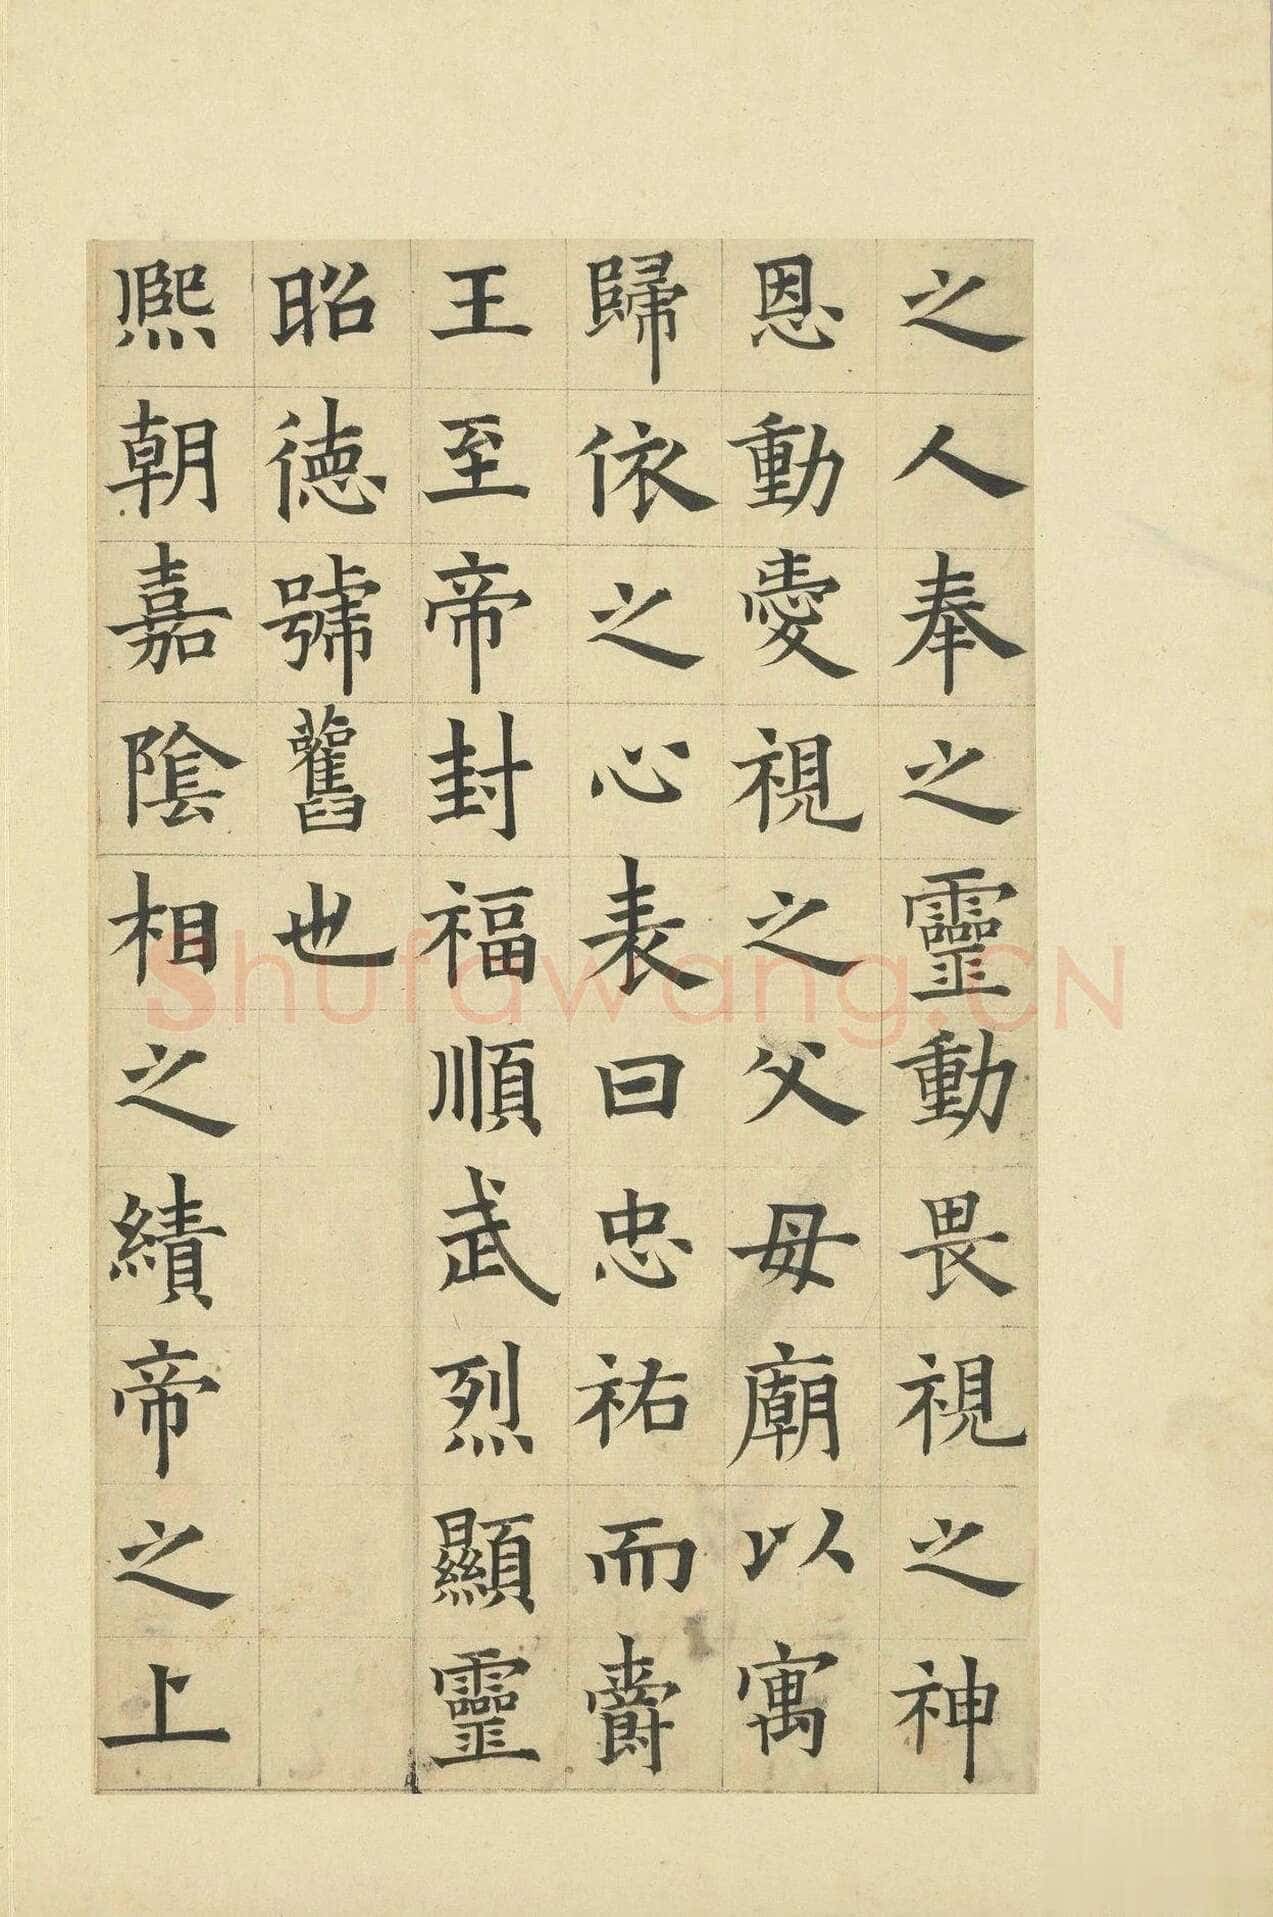 之人奉之靈動畏視之神
恩動愛視之父母廟以寓
歸依之心表曰忠祐而爵
王至帝封福順武烈顯靈
昭德號舊也
熙朝嘉隂相之績帝之上
Shufawang.CN